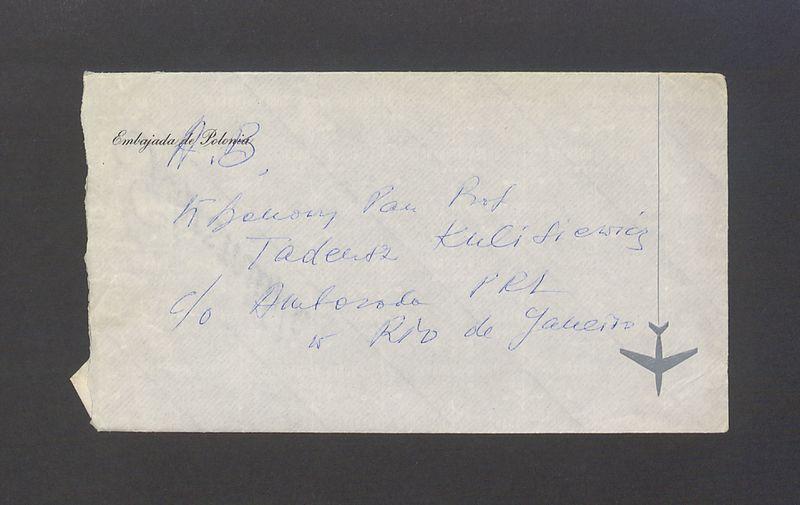 Embajada de Polonia
A.B.
Pan Prof
Tadeusz Kulisiewicz
c/o Ambasada PRL
w Rio de Janeiro